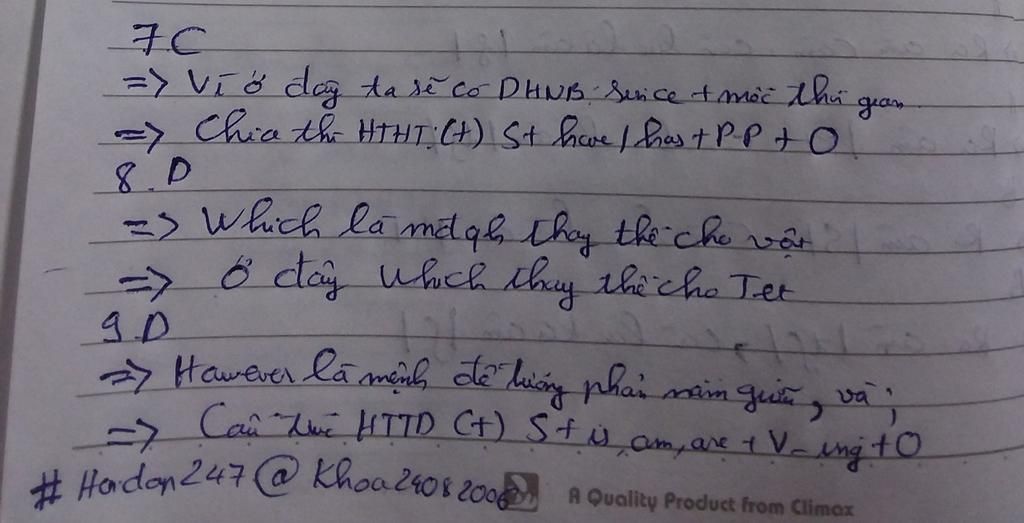 7C
=> Vì ở đây ta sẽ có DHNB: Since + mốc thời gian
=> Chia thì HTHT: (+) S+ have / has + P.P + O
8.D
=> Which là mđqh thay thế cho vật
=> Ở đây Which thay thế cho Tet
9.D
=> However là mệnh đề tương phản nằm giữa , và ;
=> Cấu trúc HTTD (+) S + is, am, are + V-ing + O
#Hoidap247@Khoa24082006
A Quality Product from Climax